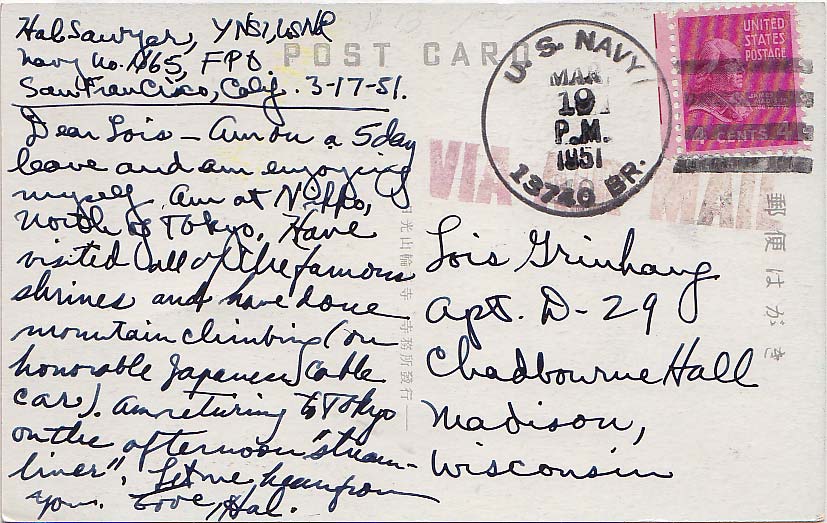 Hal Sawyer, YNS1, USNR
Navy No. 1165, FPO
San Francisco, Calif. 3-17-51.
Dear Lois – Am on a 5 day
leave and am enjoying
myself. Am at Nikko,
north of Tokyo. Have
visited all of the famous
shrines and have done
mountain climbing (on
honorable Japanese cable
car). Am returing to Tokyo
on the afternoon "stream-
liner". Let me hear from
you. Love, Hal.
POST CARD
U. S. NAVY
MAR
19
P.M.
1951
13740 BR.
UNITED
STATES
POSTAGE
JAMES
MADISON
4 CENTS 4
VIA AIR MAIL
Lois Grinhaug
Apt. D-29
Chadbourne Hall
Madison,
Wisconsin
郵便はがき
日光山輪王寺 寺務所發行